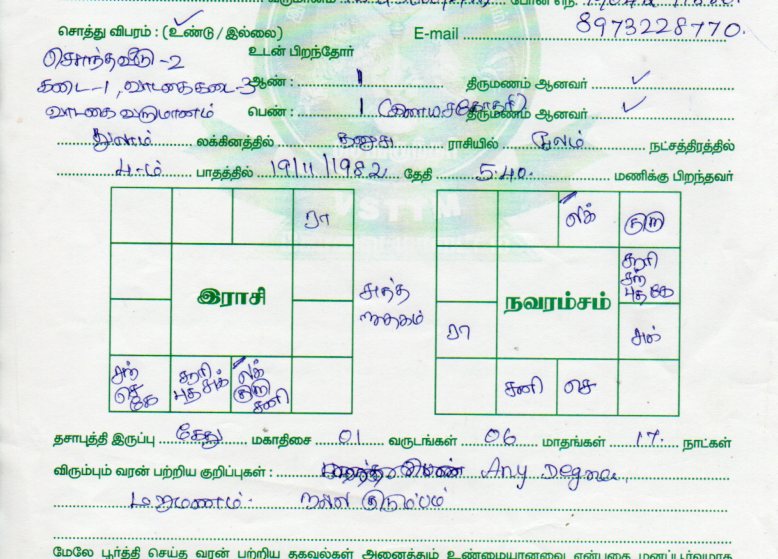 சொத்து விபரம் : (உண்டு / இல்லை) E-mail 8973228770.
உடன் பிறந்தோர்
சொந்தவீடு -2
கடை -1, வாடகைகடை -3 ஆண் : 1 திருமணம் ஆனவர் ✓
வாடகை வருமானம் பெண் : 1 திருமணம் ஆனவர் ✓
துலாம் லக்கினத்தில் தனுசு ராசியில் மூலம் நட்சத்திரத்தில்
4-ம் பாதத்தில் 19/11/1982 தேதி 5.40. மணிக்கு பிறந்தவர்
ரா லக் குரு
இராசி நவாம்சம்
சூரி
சந்
புத கே
ரா சுக்
சந்
செ
கே
சூரி
புத சுக்
லக்
குரு
சனி
சனி செ
தசாபுத்தி இருப்பு கேது மகாதிசை 01 வருடங்கள் 06 மாதங்கள் 17 நாட்கள்
விரும்பும் வரன் பற்றிய குறிப்புகள் : Any Degree,
மறுமணம். நல்ல குடும்பம்
மேலே பூர்த்தி செய்த வரன் பற்றிய தகவல்கள் அனைத்தும் உண்மையானவை என்பதை மனப்பூர்வமாக